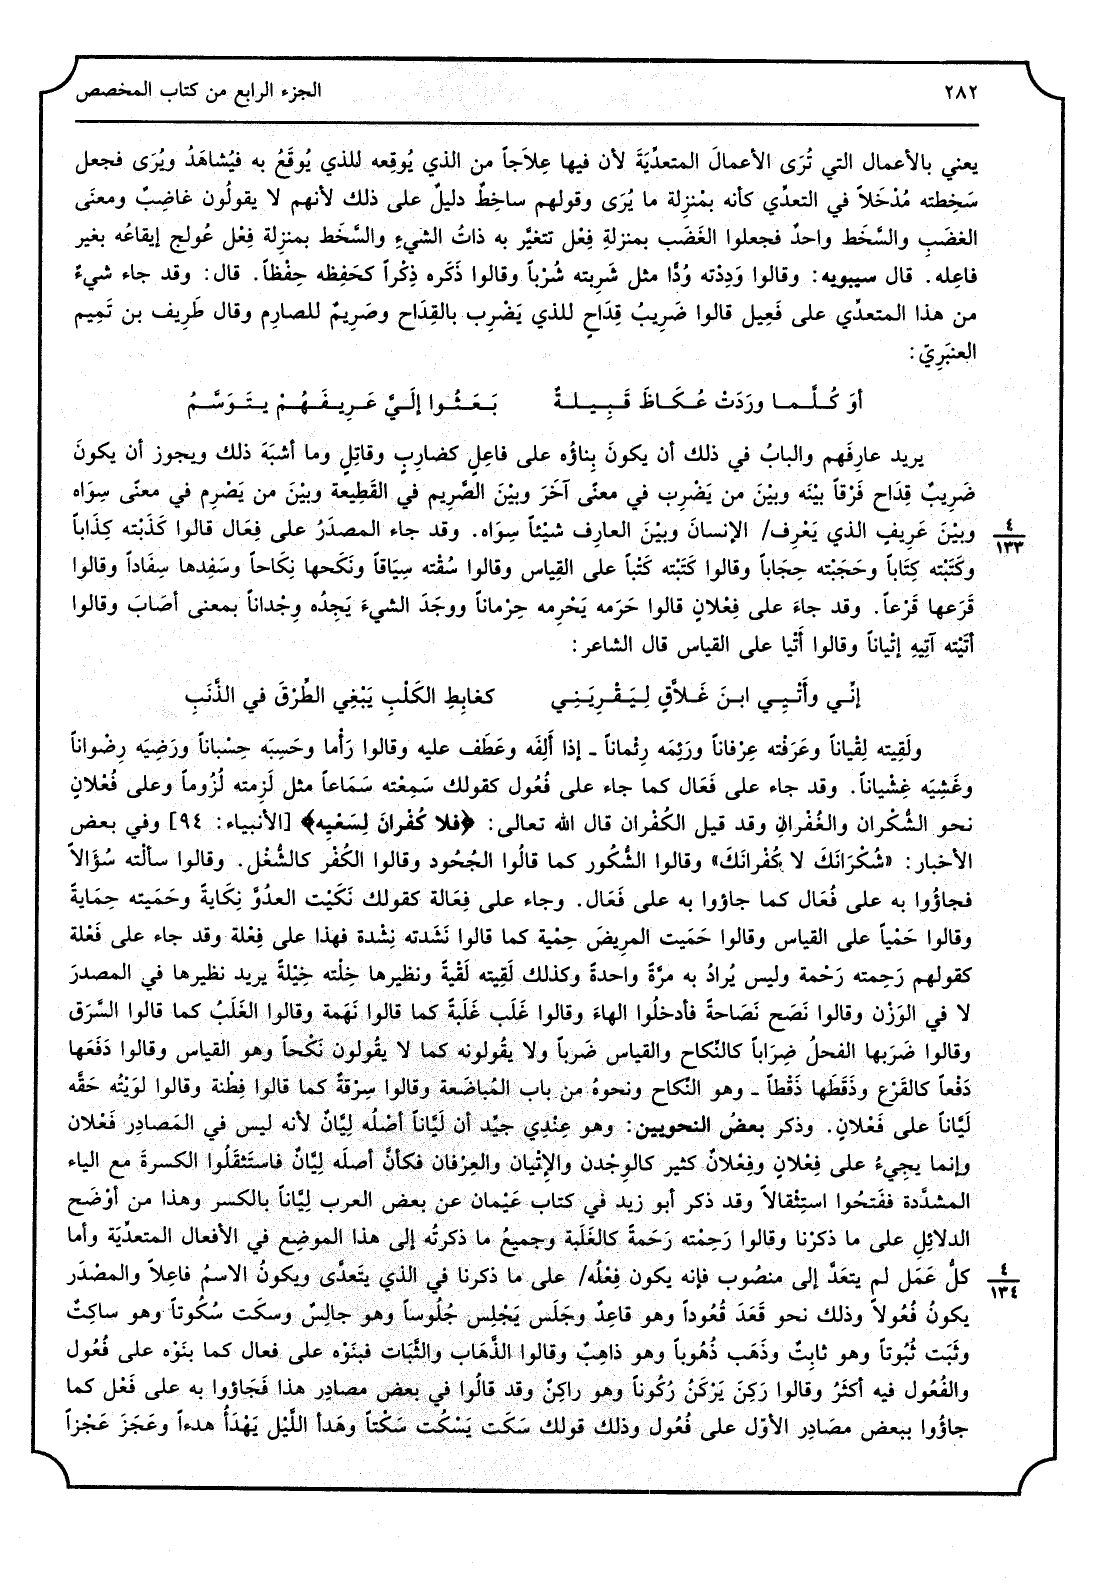 ٢٨٢
الجزء الرابع من كتاب المخصص
يعني بالأعمال التي تُرَى الأعمالَ المتعدِّيَةَ لأن فيها عِلاَجاً من الذي يُوقِعه للذي يُوقَعُ به فيُشاهَدُ ويُرَى فجعل
سَخِطته مُدْخَلاً في التعدِّي كأنه بمْنزِلة ما يُرَى وقولهم ساخِطٌ دليلٌ على ذلك لأنهم لا يقولُون غاضِبٌ ومعنى
الغضَبِ والسَّخَط واحدٌ فجعلوا الغَضَب بمنزلةِ فِعْل تتغيَّر به ذاتُ الشيءِ والسَّخَط بمنزلة فِعْل عُولج إيقاعُه بغير
فاعِله. قال سيبويه: وقالوا وَدِدْته وُدًّا مثل شَرِبته شُرْباً وقالوا ذَكَره ذِكْراً كحَفِظه حِفْظاً. قال: وقد جاء شيءٌ
من هذا المتعدِّي على فَعِيل قالوا ضَرِيبُ قِدَاحٍ للذي يَضْرِب بالقِدَاح وصَرِيمٌ للصارِم وقال طَرِيف بن تَمِيم
العنبَرِيّ:
أوَ كُلَّـمـا ورَدَتْ عُـكَـاظَ قَـبِـيـلـةٌ بَـعَـثُـوا إلَـيَّ عَـرِيـفَـهُـمْ يـتَـوَسَّـمُ
يريد عارِفَهم والبابُ في ذلك أن يكونَ بِناؤُه على فاعِلٍ كضارِبٍ وقاتِلٍ وما أشبَهَ ذلك ويجوز أن يكونَ
ضَرِيبُ قِدَاح فَرْقاً بيْنَه وبيْنَ من يَضْرِب في معنى آخَرَ وبيْنَ الصَّرِيم في القَطِيعة وبيْنَ من يَصْرِم في معنى سِوَاه
وبيْنَ عَرِيفِ الذي يَعْرِف/ الإنسانَ وبيْنَ العارِف شيْئاً سِوَاه. وقد جاء المصدَرُ على فِعَال قالوا كَذَبْته كِذَاباً
٤
١٣٣
وكَتَبْته كِتَاباً وحَجَبْته حِجَاباً وقالوا كَتَبْته كَتْباً على القِياس وقالوا سُقْته سِيَاقاً ونَكَحها نِكَاحاً وسَفِدها سِفَاداً وقالوا
قَرَعها قَرْعاً. وقد جاءَ على فِعْلانٍ قالوا حَرَمه يَحْرِمه حِرْماناً ووجَدَ الشيءَ يَجِدُه وِجْداناً بمعنى أصَابَ وقالوا
أتَيْته آتِيهِ إتْياناً وقالوا أَتْيا على القياس قال الشاعر:
إنِّـي وأَتْـيِـي ابـنَ غَـلاَّقٍ لِـيَـقْـرِيَـنِـي كغابِطِ الكَلْبِ يَبْغِي الطِّرْقَ في الذَّنَبِ
ولَقِيته لِقْياناً وعَرَفْته عِرْفاناً ورَئِمَه رِئْماناً ـ إذا أَلِفَه وعَطَف عليه وقالوا رَأْما وحَسِبَه حِسْباناً ورَضِيَه رِضْواناً
وغَشِيَه غِشْياناً. وقد جاء على فَعَال كما جاء على فُعُول كقولك سَمِعْته سَمَاعاً مثل لَزِمته لُزُوماً وعلى فُعْلانٍ
نحو الشُّكْران والغُفْرانِ وقد قيل الكُفْران قال الله تعالى: ﴿فلا كُفْرانَ لِسَعْيِه﴾ [الأنبياء: ٩٤] وفي بعض
الأخبار: «شُكْرَانَكَ لا كُفْرانَكَ» وقالوا الشُّكُور كما قالُوا الجُحُود وقالوا الكُفْر كالشُّغْل. وقالوا سألْته سُؤَالاً
فجاؤُوا به على فُعَال كما جاؤوا به على فَعَال. وجاء على فِعَالة كقولك نَكَيْت العدُوَّ نِكَايةً وحَمَيته حِمَايةً
وقالوا حَمْياً على القياس وقالوا حَمَيت المرِيضَ حِمْية كما قالوا نَشَدته نِشْدة فهذا على فِعْلة وقد جاء على فَعْلة
كقولهم رَحِمته رَحْمة وليس يُرادُ به مرَّةً واحدةً وكذلك لَقِيته لَقْيةً ونظيرها خِلْته خَيْلةً يريد نظيرها في المصدرَ
لا في الوَزْن وقالوا نَصَح نَصَاحةً فأدخلُوا الهاءَ وقالوا غَلَب غَلَبةً كما قالوا نَهَمة وقالوا الغَلَبُ كما قالوا السَّرَق
وقالوا ضَرَبها الفحلُ ضِرَاباً كالنِّكاح والقياس ضَرباً ولا يقُولونه كما لا يقُولون نَكْحاً وهو القياس وقالوا دَفَعَها
دَفْعاً كالقَرْع وذَقَطَها ذَقْطاً ـ وهو النِّكاح ونحوهُ من باب المُباضَعة وقالوا سِرْقةً كما قالوا فِطْنة وقالوا لوَيْتُه حَقَّه
لَيَّاناً على فَعْلانٍ. وذكر بعضُ النحويين: وهو عِنْدِي جيِّد أن لَيَّاناً أصْلُه لِيَّانٌ لأنه ليس في المَصادِر فَعْلان
وإنما يجِيءُ على فِعْلانٍ وفِعْلانٌ كثير كالوِجْدن والإتْيان والعِرْفان فكأنَّ أصلَه لِيَّانٌ فاستَثقَلُوا الكسرةَ مع الياء
المشدَّدة ففَتحُوا استِثْقالاً وقد ذكر أبو زيد في كتاب عَيْمان عن بعض العرب لِيَّاناً بالكسر وهذا من أوْضَح
الدلائِلِ على ما ذكرْنا وقالوا رَحِمْته رَحَمةً كالغَلَبة وجميعُ ما ذكرتُه إلى هذا الموضِع في الأفعال المتعدِّيَة وأما
كلُّ عَمَل لم يتعَدَّ إلى منصُوب فإنه يكون فِعْلُه/ على ما ذكرنا في الذي يتَعدَّى ويكونُ الاسمُ فاعِلاً والمصْدَر
٤
١٣٤
يكونُ فُعُولاً وذلك نحو قَعَدَ قُعُوداً وهو قاعِدٌ وجَلَس يَجْلِس جُلُوساً وهو جالِسٌ وسكَت سُكُوتاً وهو ساكِتٌ
وثَبَت ثُبُوتاً وهو ثابِتٌ وذَهَب ذُهُوباً وهو ذاهِبٌ وقالوا الذَّهَاب والثَّبَات فبنَوْه على فعال كما بنَوْه على فُعُول
والفُعُول فيه أكثَرُ وقالوا رَكِنَ يَرْكَنُ رُكُوناً وهو راكِنٌ وقد قالُوا في بعض مصادِر هذا فَجَاؤوا به على فَعْل كما
جاؤُوا ببعض مصَادِر الأوّل على فُعُول وذلك قولك سَكَت يَسْكُت سَكْتاً وهَدأ اللَّيْل يَهْدَأُ هدءاً وعَجَزَ عَجْزاً